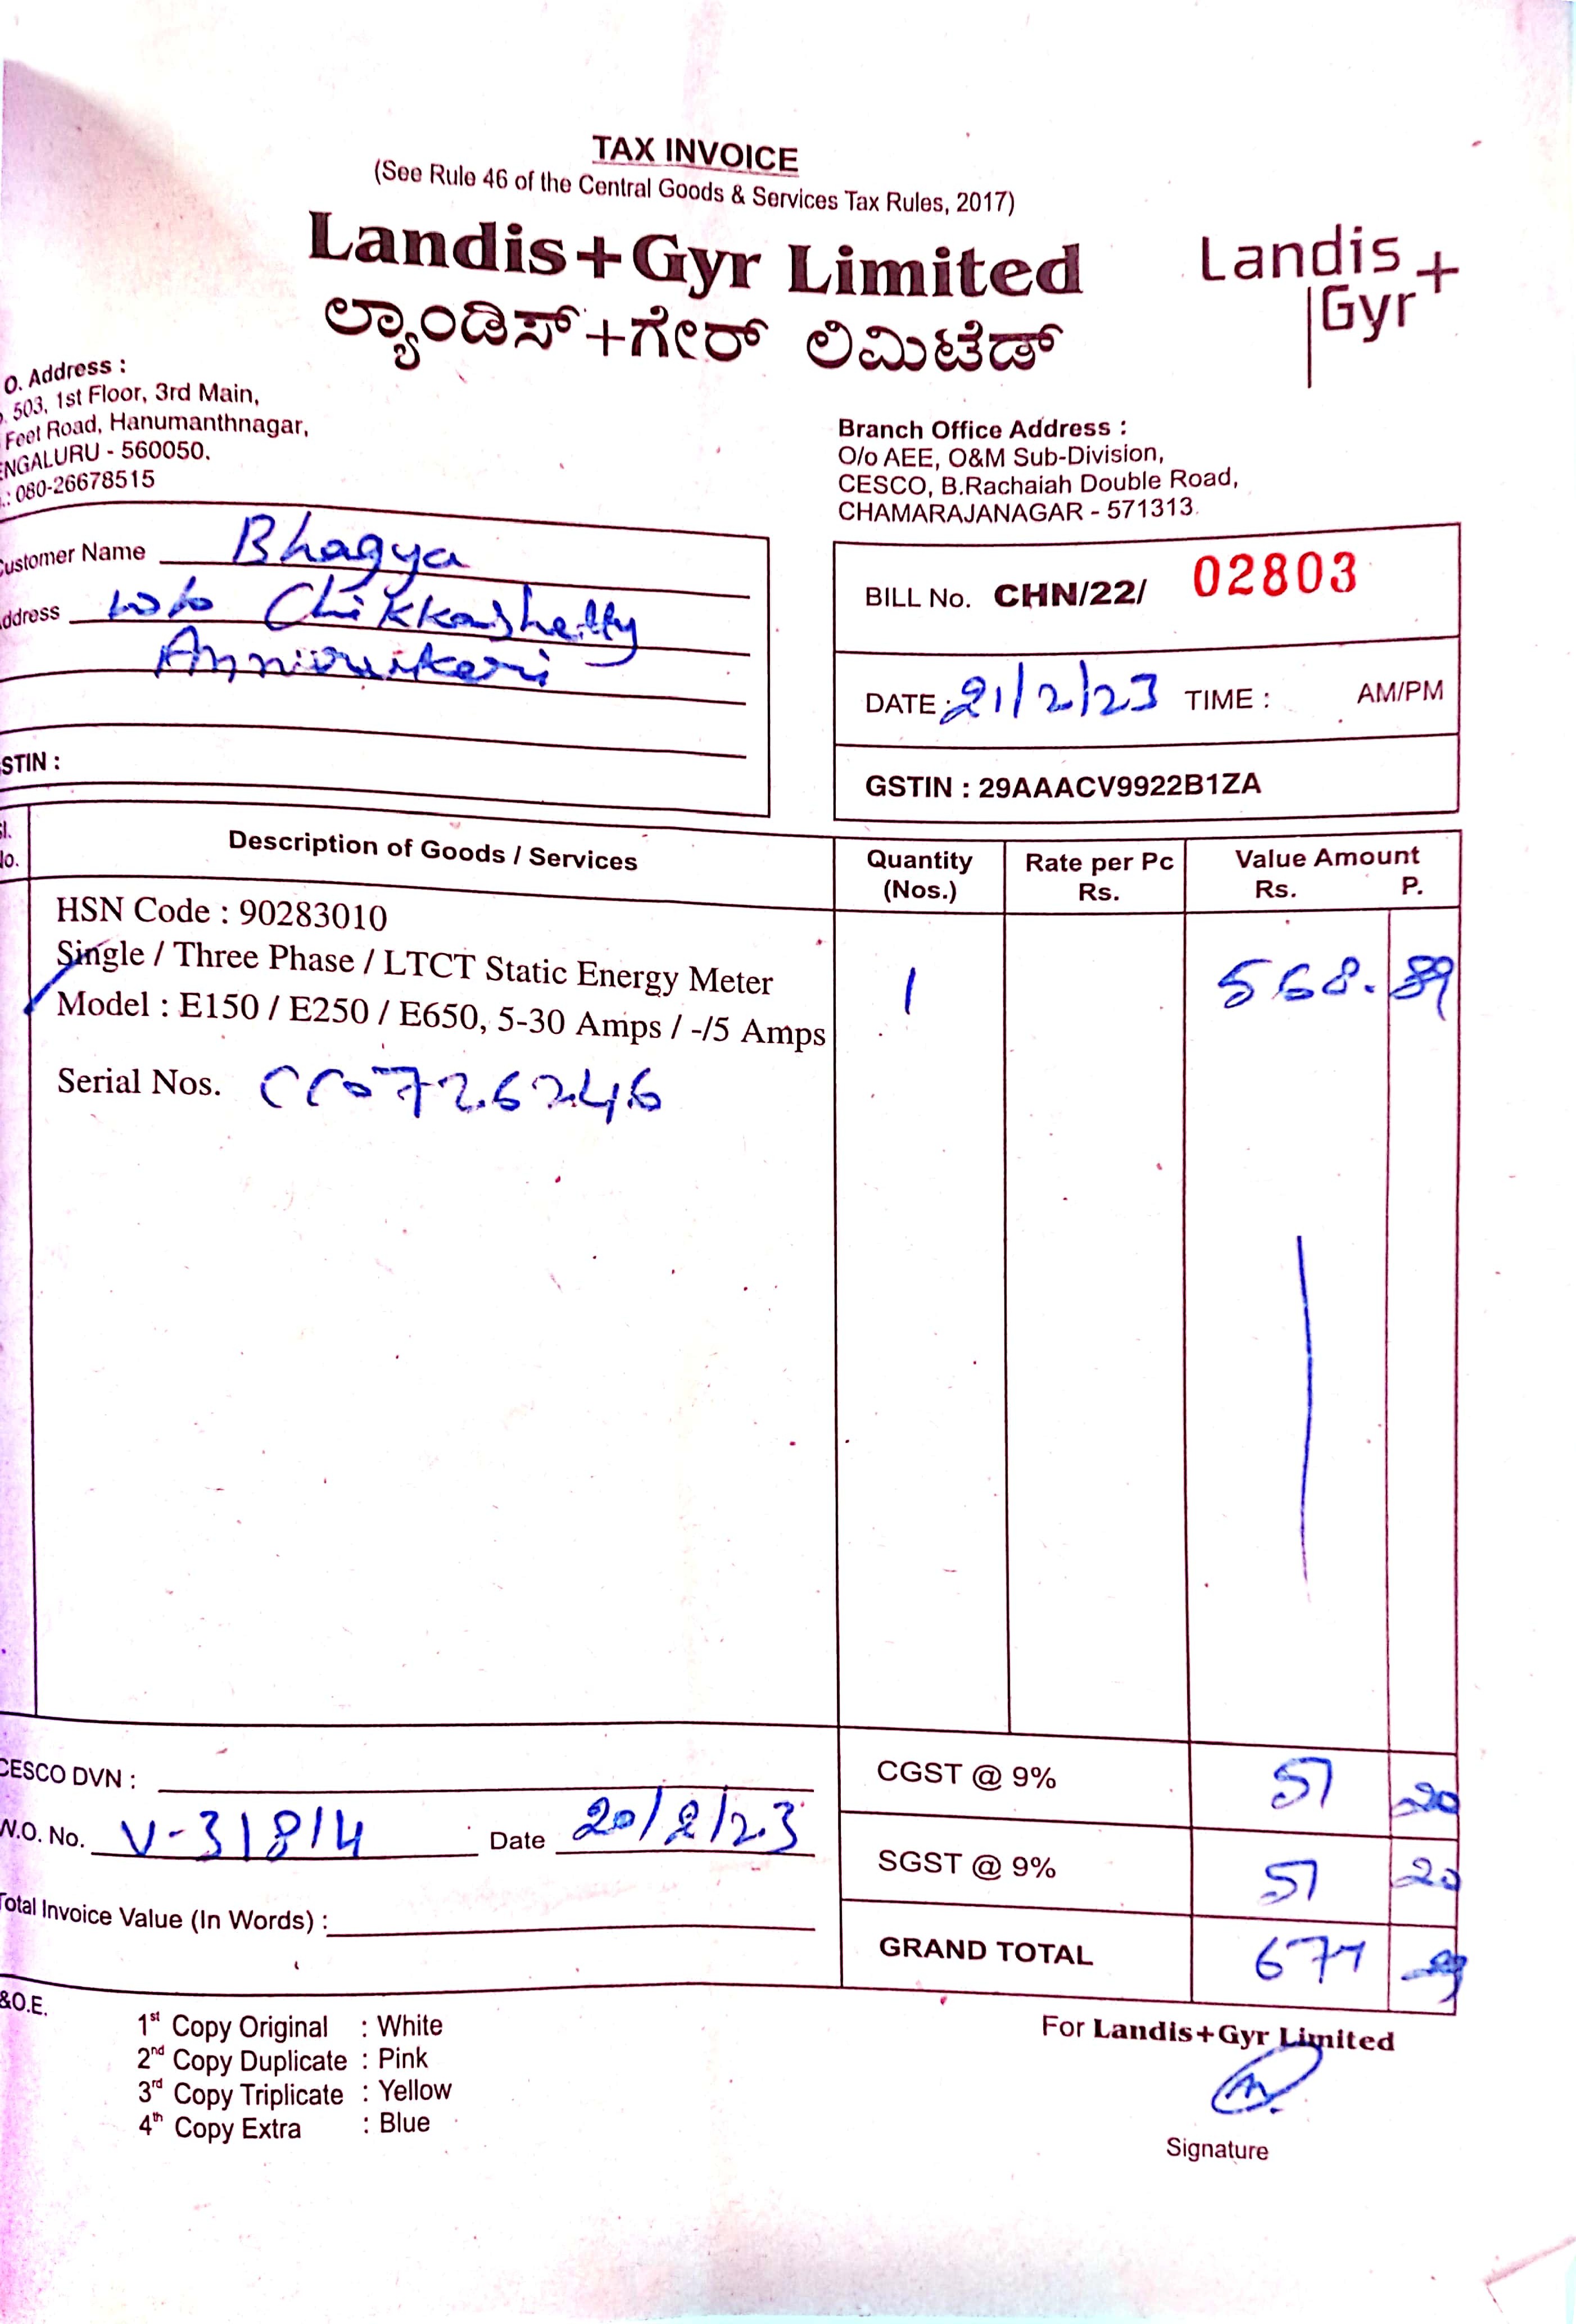 TAX INVOICE
(See Rule 46 of the Central Goods & Services Tax Rules, 2017)
Landis+Gyr Limited
ಲ್ಯಾಂಡಿಸ್+ಗೇರ್ ಲಿಮಿಟೆಡ್
Landis+
Gyr
O. Address :
503, 1st Floor, 3rd Main,
Feet Road, Hanumanthnagar,
ENGALURU - 560050.
.: 080-26678515
Branch Office Address :
O/o AEE, O&M Sub-Division,
CESCO, B.Rachaiah Double Road,
CHAMARAJANAGAR - 571313.
ustomer Name Bhagya
ddress w/o Chikkashetty
STIN :
BILL No. CHN/22/ 02803
DATE : 21/2/23 TIME : AM/PM
GSTIN : 29AAACV9922B1ZA
Sl. No. Description of Goods / Services Quantity (Nos.) Rate per Pc Rs. Value Amount Rs. P.
HSN Code : 90283010
Single / Three Phase / LTCT Static Energy Meter 1 568.89
Model : E150 / E250 / E650, 5-30 Amps / -/5 Amps
Serial Nos. CC0726246
CESCO DVN :
W.O. No. V-31814 Date 20/2/23
Total Invoice Value (In Words) :
CGST @ 9% 51 20
SGST @ 9% 51 20
GRAND TOTAL 671
&O.E.
1st Copy Original : White
2nd Copy Duplicate : Pink
3rd Copy Triplicate : Yellow
4th Copy Extra : Blue
For Landis+Gyr Limited
Signature